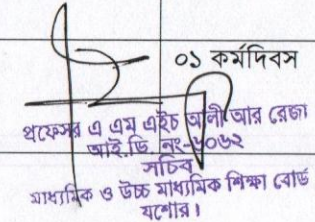 ০১ কর্মদিবস
প্রফেসর এ এম এইচ আলী আর রেজা
আই.ডি. নং-৬০৬২
সচিব
মাধ্যমিক ও উচ্চ মাধ্যমিক শিক্ষা বোর্ড
যশোর।